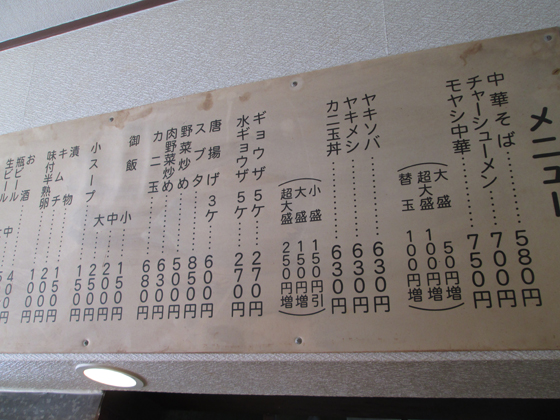 メニュー
中華そば‥‥‥‥580円
チャーシューメン‥‥‥700円
モヤシ中華‥‥‥‥750円
大盛 50円増
超大盛 100円増
替玉 100円増
ヤキソバ‥‥‥‥630円
ヤキメシ‥‥‥‥630円
カニ玉丼‥‥‥‥630円
小盛 150円引
大盛 100円増
超大盛 250円増
ギョウザ 5ケ‥‥270円
水ギョウザ 5ケ‥‥270円
唐揚げ 3ケ‥‥600円
スブタ‥‥‥‥850円
野菜炒め‥‥‥500円
肉野菜炒め‥‥‥580円
カニ玉‥‥‥‥680円
御飯 小‥‥150円
中‥‥200円
大‥‥250円
小スープ‥‥‥50円
漬物‥‥‥‥100円
キムチ‥‥‥‥150円
味付半熟卵‥‥‥
お酒
瓶ビール
生ビール